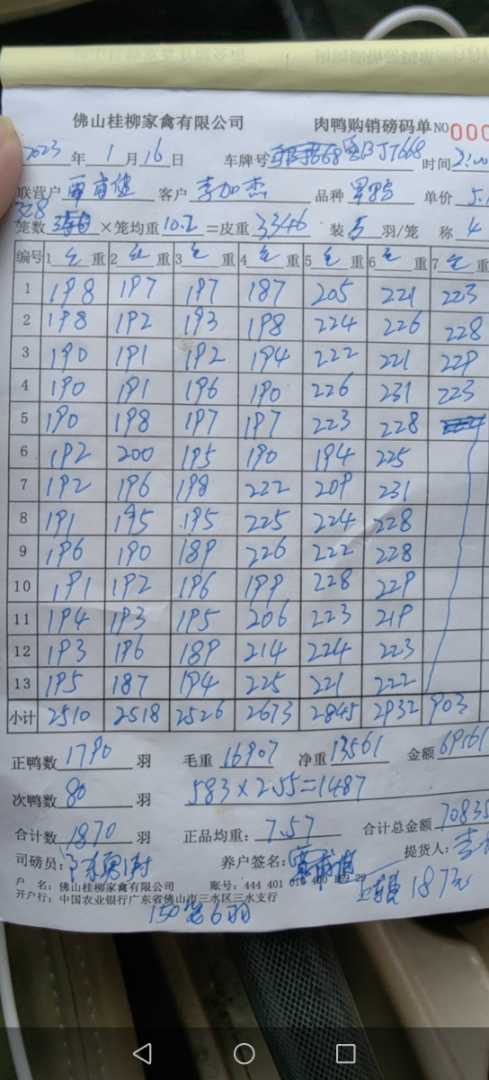 佛山桂柳家禽有限公司 肉鸭购销磅码单 NO 000
2023 年 1 月 16 日 车牌号 粤BJT668 时间 2:00
联营户 客户 李加杰 品种 单价 5.1
笼数 328 ×笼均重 10.2 =皮重 3346 装 5 羽/笼 称 4
编号 1 仑 重 2 仑 重 3 仑 重 4 仑 重 5 仑 重 6 仑 重 7 仑 重
1 198 197 197 187 205 221 223
2 198 192 193 198 224 226 228
3 190 191 192 194 222 221 229
4 190 191 196 190 226 231 223
5 190 198 197 197 223 228
6 192 200 195 190 194 225
7 192 196 198 232 209 231
8 191 195 195 225 224 228
9 196 190 189 226 222 228
10 191 192 196 199 228 229
11 194 193 195 206 223 219
12 193 196 189 214 224 223
13 195 187 194 225 221 222
小计 2510 2518 2526 2673 2845 2932 903
正鸭数 1790 羽 毛重 16907 净重 13561 金额 69161
次鸭数 80 羽 583×2.55=1487
合计数 1870 羽 正品均重: 7.57 合计总金额 70835
司磅员: 养户签名: 提货人: 李
户 名: 佛山桂柳家禽有限公司 账号: 444 401 29
开户行: 中国农业银行广东省佛山市三水区三水支行 187元
150笼6羽